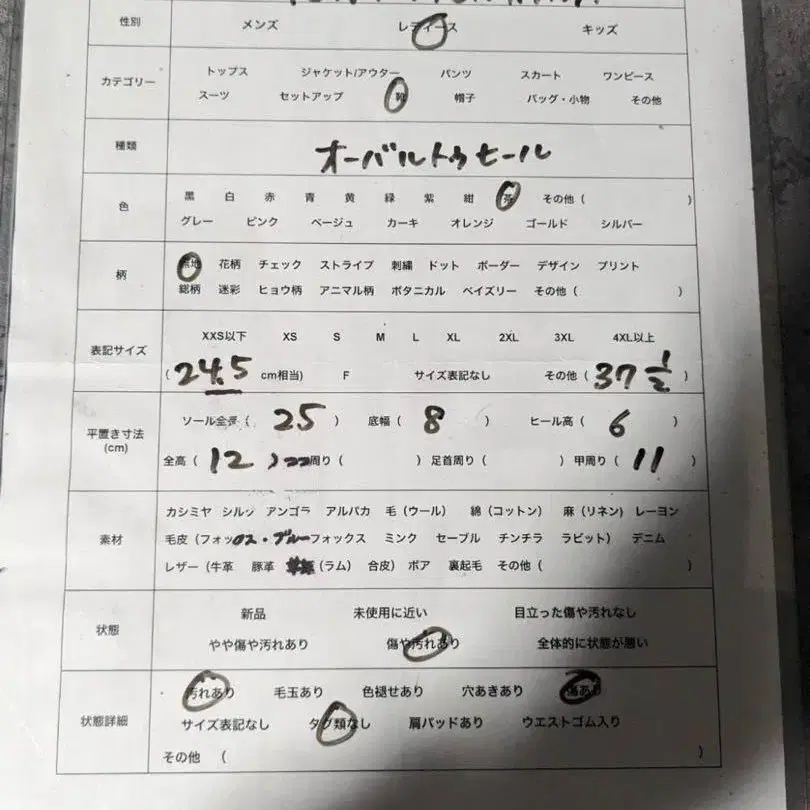 性別 メンズ レディース キッズ
カテゴリー
トップス ジャケット/アウター パンツ スカート ワンピース
スーツ セットアップ 靴 帽子 バッグ・小物 その他
種類 オーバルトゥヒール
色
黒 白 赤 青 黄 緑 紫 紺 茶 その他 ( )
グレー ピンク ベージュ カーキ オレンジ ゴールド シルバー
柄
無地 花柄 チェック ストライプ 刺繍 ドット ボーダー デザイン プリント
総柄 迷彩 ヒョウ柄 アニマル柄 ボタニカル ペイズリー その他 ( )
表記サイズ
XXS以下 XS S M L XL 2XL 3XL 4XL以上
( 24.5 cm相当) F サイズ表記なし その他 ( 37 1/2 )
平置き寸法
(cm)
ソール全長 ( 25 ) 底幅 ( 8 ) ヒール高 ( 6 )
全高 ( 12 ) 周り ( ) 足首周り ( ) 甲周り ( 11 )
素材
カシミヤ シルク アンゴラ アルパカ 毛 (ウール) 綿 (コットン) 麻 (リネン) レーヨン
毛皮 (フォックス・ブルーフォックス ミンク セーブル チンチラ ラビット) デニム
レザー (牛革 豚革 (ラム) 合皮) ボア 裏起毛 その他 ( )
状態
新品 未使用に近い 目立った傷や汚れなし
やや傷や汚れあり 傷や汚れあり 全体的に状態が悪い
状態詳細
汚れあり 毛玉あり 色褪せあり 穴あきあり 傷あり
サイズ表記なし タグ類なし 肩パッドあり ウエストゴム入り
その他 ( )